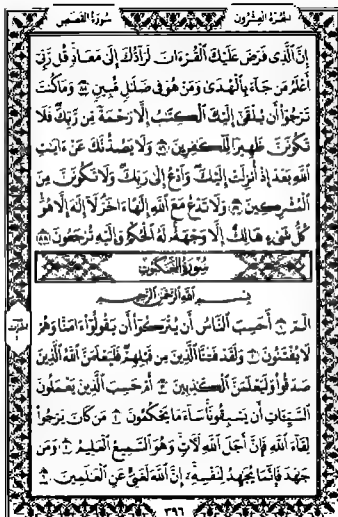 الجزء العشرون سورة القصص
إِنَّ ٱلَّذِى فَرَضَ عَلَيْكَ ٱلْقُرْءَانَ لَرَآدُّكَ إِلَىٰ مَعَادٍ قُل رَّبِّىٓ
أَعْلَمُ مَن جَآءَ بِٱلْهُدَىٰ وَمَنْ هُوَ فِى ضَلَٰلٍ مُّبِينٍ ٨٥ وَمَا كُنتَ
تَرْجُوٓا۟ أَن يُلْقَىٰٓ إِلَيْكَ ٱلْكِتَٰبُ إِلَّا رَحْمَةً مِّن رَّبِّكَ فَلَا
تَكُونَنَّ ظَهِيرًا لِّلْكَٰفِرِينَ ٨٦ وَلَا يَصُدُّنَّكَ عَنْ ءَايَٰتِ
ٱللَّهِ بَعْدَ إِذْ أُنزِلَتْ إِلَيْكَ وَٱدْعُ إِلَىٰ رَبِّكَ وَلَا تَكُونَنَّ مِنَ
ٱلْمُشْرِكِينَ ٨٧ وَلَا تَدْعُ مَعَ ٱللَّهِ إِلَٰهًا ءَاخَرَ لَآ إِلَٰهَ إِلَّا هُوَ
كُلُّ شَىْءٍ هَالِكٌ إِلَّا وَجْهَهُۥ لَهُ ٱلْحُكْمُ وَإِلَيْهِ تُرْجَعُونَ ٨٨
سورة العنكبوت
بِسْمِ ٱللَّهِ ٱلرَّحْمَٰنِ ٱلرَّحِيمِ
الٓمٓ ١ أَحَسِبَ ٱلنَّاسُ أَن يُتْرَكُوٓا۟ أَن يَقُولُوٓا۟ ءَامَنَّا وَهُمْ
لَا يُفْتَنُونَ ٢ وَلَقَدْ فَتَنَّا ٱلَّذِينَ مِن قَبْلِهِمْ فَلَيَعْلَمَنَّ ٱللَّهُ ٱلَّذِينَ
صَدَقُوا۟ وَلَيَعْلَمَنَّ ٱلْكَٰذِبِينَ ٣ أَمْ حَسِبَ ٱلَّذِينَ يَعْمَلُونَ
ٱلسَّيِّـَٔاتِ أَن يَسْبِقُونَا سَآءَ مَا يَحْكُمُونَ ٤ مَن كَانَ يَرْجُوا۟
لِقَآءَ ٱللَّهِ فَإِنَّ أَجَلَ ٱللَّهِ لَءَاتٍ وَهُوَ ٱلسَّمِيعُ ٱلْعَلِيمُ ٥ وَمَن
جَٰهَدَ فَإِنَّمَا يُجَٰهِدُ لِنَفْسِهِۦٓ إِنَّ ٱللَّهَ لَغَنِىٌّ عَنِ ٱلْعَٰلَمِينَ ٦
٣٩٦